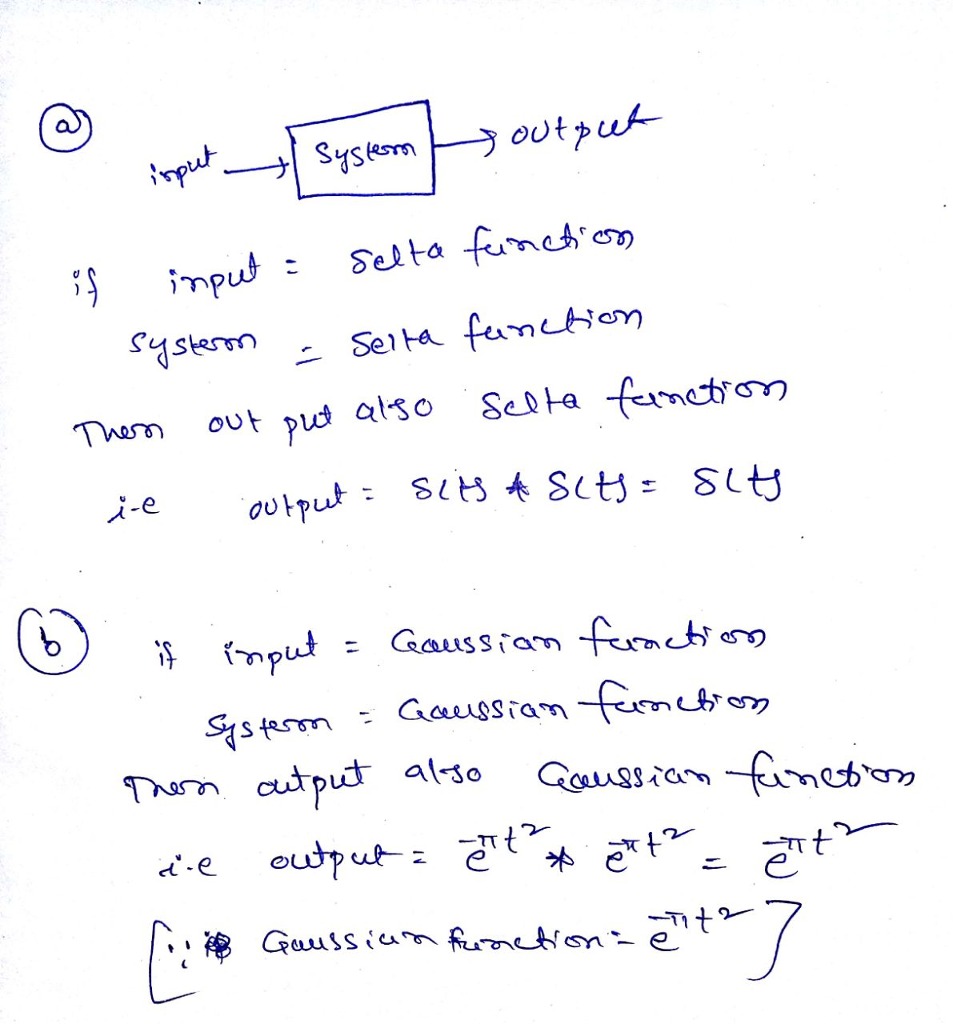 (a)
input → System → output
if input = δelta function
System = δelta function
Then out put also δelta function
i-e output = δ(t) * δ(t) = δ(t)
(b) if input = Gaussian function
System = Gaussian function
Then output also Gaussian function
i.e output = e^{-πt²} * e^{-πt²} = e^{-πt²}
[∵ Gaussian function = e^{-πt²}]